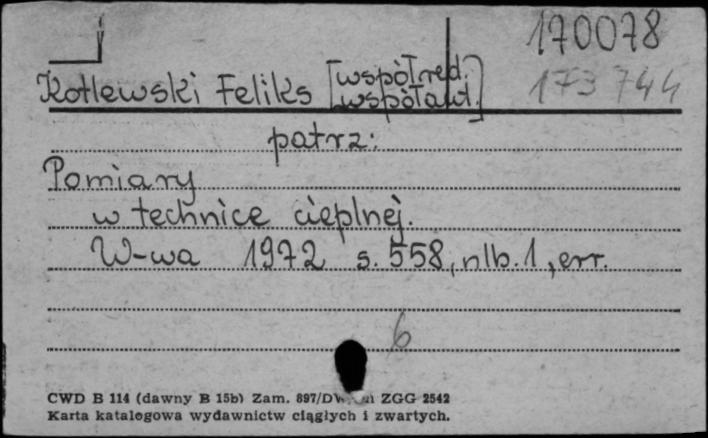 170078
Kotlewski Feliks [współred. współaut.]
173744
patrz:
Pomiary
w technice cieplnej.
W-wa 1972 s. 558, nlb. 1, err.
6
CWD B 114 (dawny B 15b) Zam. 897/DW ZGG 2542
Karta katalogowa wydawnictw ciągłych i zwartych.